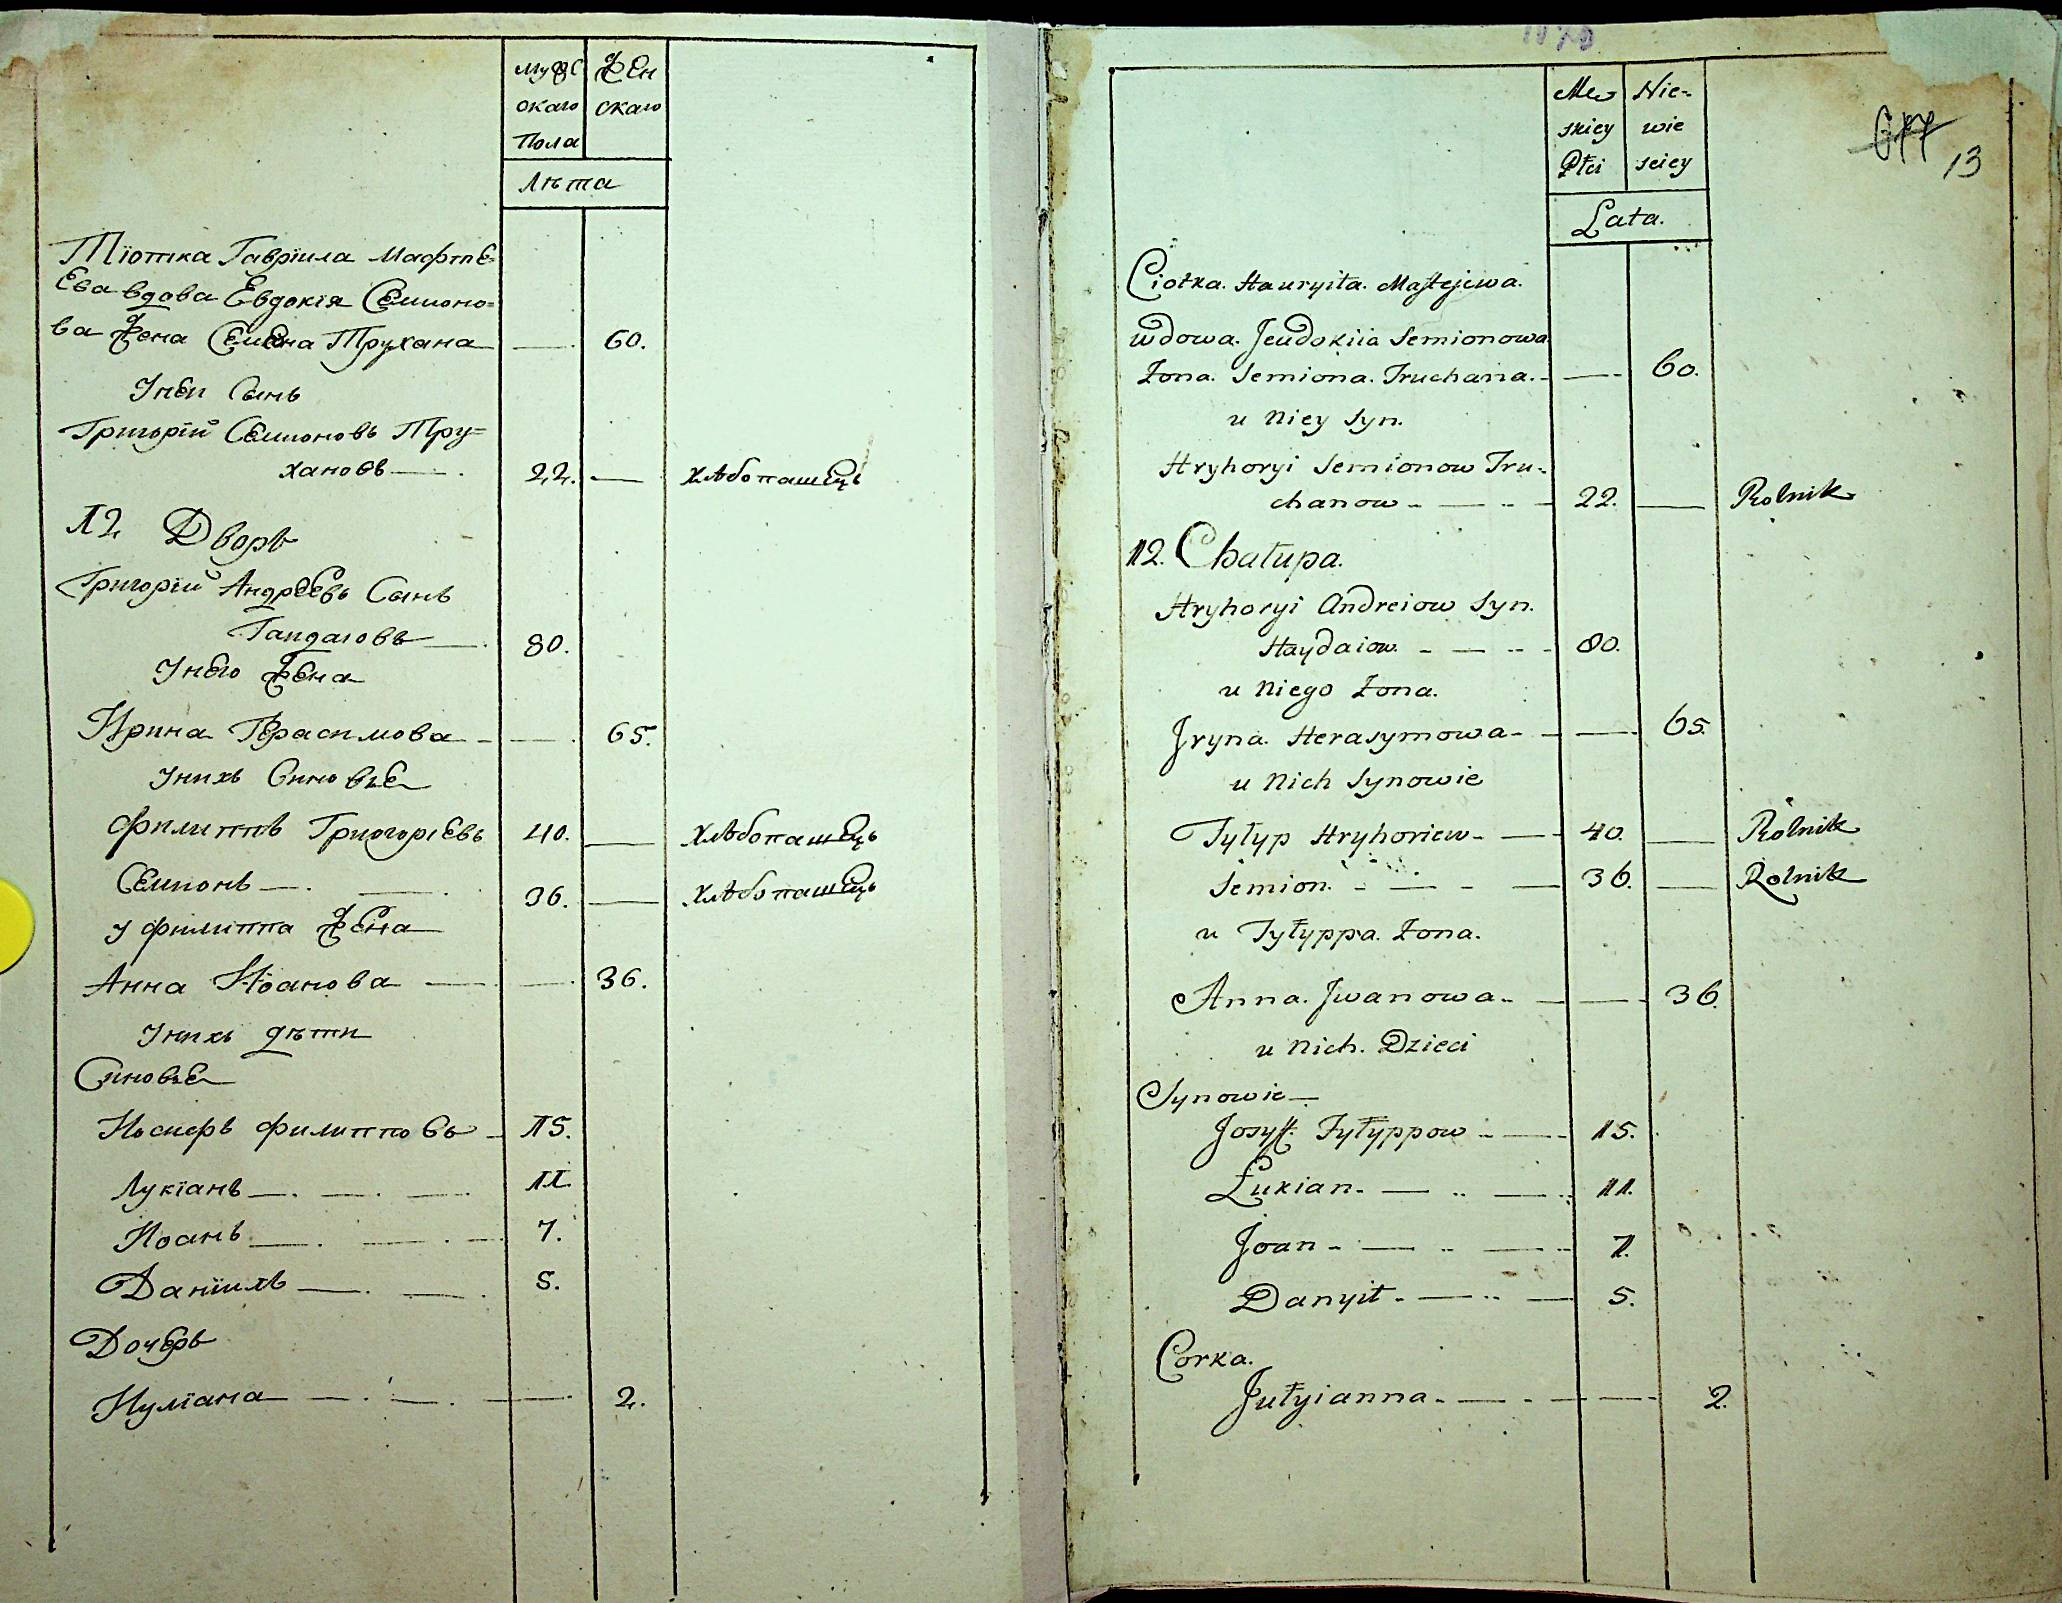 Мужс
скаго
Пола
Жен
скаго
Лѣта
Тіотка Гавріила Мафтѣ-
Ева вдова Евдокія Семионо-
ва Жена Семена Трухана — 60.
Унеи Сынъ
Григорій Семионовъ Тру-
хановъ — 22. — хлѣбопашецъ
12 Дворъ
Григорій Андреевъ Сынъ
Гайдаговъ — 80.
Унего Жена
Ирина Герасимова — 65.
Унихъ Синовѣе
Филиппъ Григоріевъ 40. — хлѣбопашецъ
Семионъ — 36. — хлѣбопашецъ
У Филиппа Жена
Анна Иоанова — 36.
Унихъ дѣти
Синовѣе
Иосифъ Филипповъ — 15.
Лукіанъ — 11.
Иоанъ — 7.
Даніилъ — 5.
Дочеръ
Иуліана — 2.
Mę
skiey
Płci
Nie-
wie
sciey
Lata.
13
Ciotka. Hauryiła. Maftejewa.
wdowa. Jeudokiia Semionowa
Żona. Semiona. Truchana. — 60.
u Niey Syn.
Hryhoryi Semionow Tru-
chanow — 22. — Rolnik
12. Chałupa.
Hryhoryi Andreiow Syn.
Haydaiow. — 80.
u Niego Żona.
Jryna. Herasymowa — 65.
u Nich Synowie
Fyłyp Hryhoriew — 40. — Rolnik
Semion. — 36. — Rolnik
u Fyłyppa. Żona.
Anna. Jwanowa — 36.
u Nich. Dzieci
Synowie —
Josyff. Fyłyppow — 15.
Łukian. — 11.
Joan — 7.
Danyił — 5.
Corka.
Jułyianna — 2.